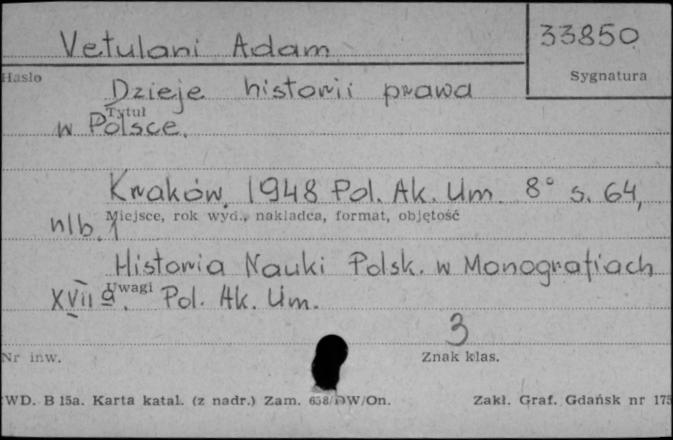 Vetulani Adam
33850
Hasło
Sygnatura
Dzieje historii prawa
Tytuł
w Polsce.
Kraków, 1948 Pol. Ak. Um. 8° s. 64,
Miejsce, rok wyd., nakładca, format, objętość
nlb. 1
Historia Nauki Polsk. w Monografiach
Uwagi
XVII g. Pol. Ak. Um.
3
Nr inw.
Znak klas.
WD. B 15a. Karta katal. (z nadr.) Zam. 658/DW/On.
Zakł. Graf. Gdańsk nr 175